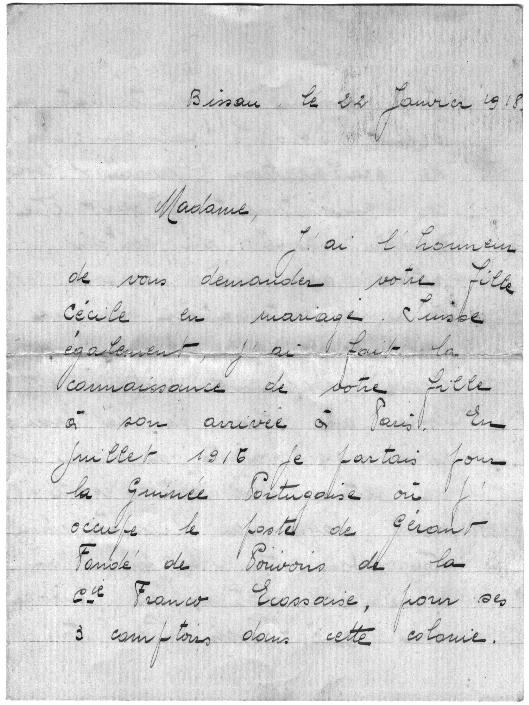 Bissau, le 22 Janvier 1918.
Madame,
J'ai l'honneur
de vous demander votre fille
Cécile en mariage. Suisse
également, j'ai fait la
connaissance de votre fille
à son arrivée à Paris. En
Juillet 1916 je partais pour
la Guinée Portugaise où j'
occupe le poste de Gérant
Fondé de Pouvoirs de la
Cie Franco Ecossaise, pour ses
3 comptoirs dans cette colonie.